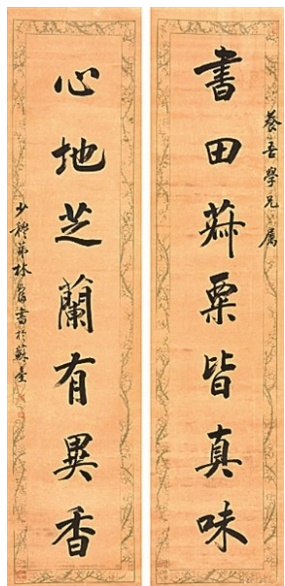 養吾學兄屬
書田菽粟皆真味
心地芝蘭有異香
少穆弟林書於蘇臺